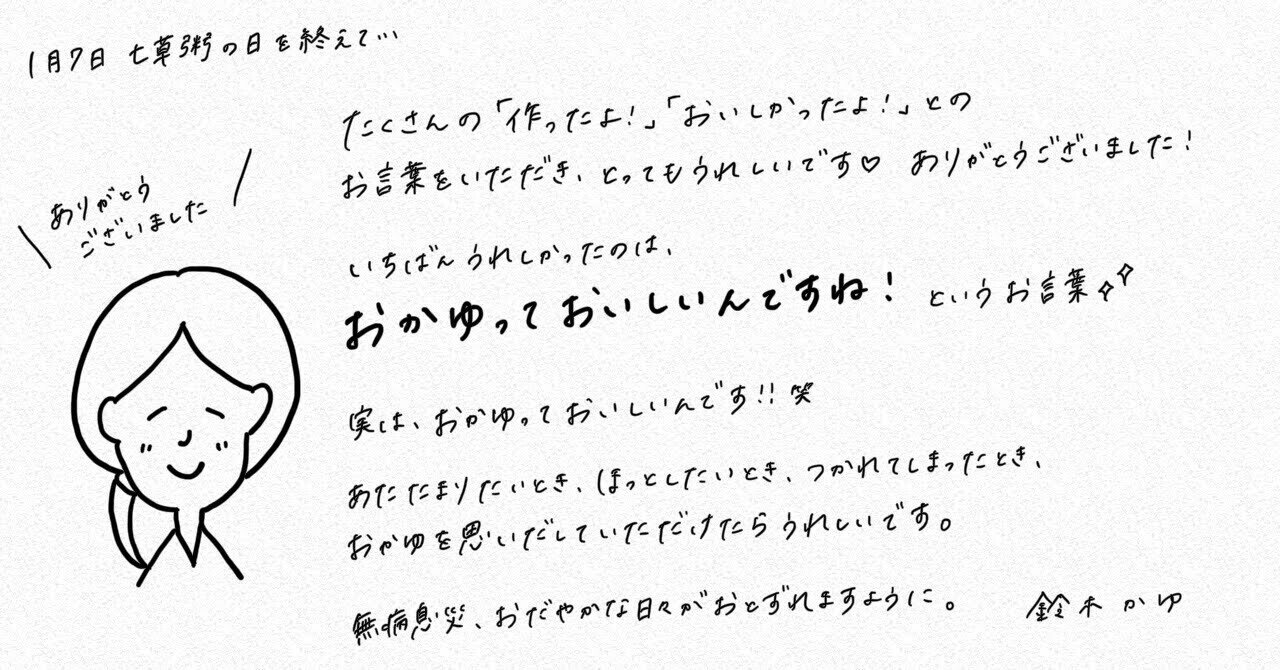 1月7日 七草粥の日を終えて…
たくさんの「作ったよ!」「おいしかったよ!」との
お言葉をいただき、とってもうれしいです♡ ありがとうございました!
ありがとう
ございました
いちばんうれしかったのは、
おかゆっておいしいんですね! というお言葉✧✧
実は、おかゆっておいしいんです!!笑
あたたまりたいとき、ほっとしたいとき、つかれてしまったとき、
おかゆを思いだしていただけたらうれしいです。
無病息災、おだやかな日々がおとずれますように。 鈴木かゆ